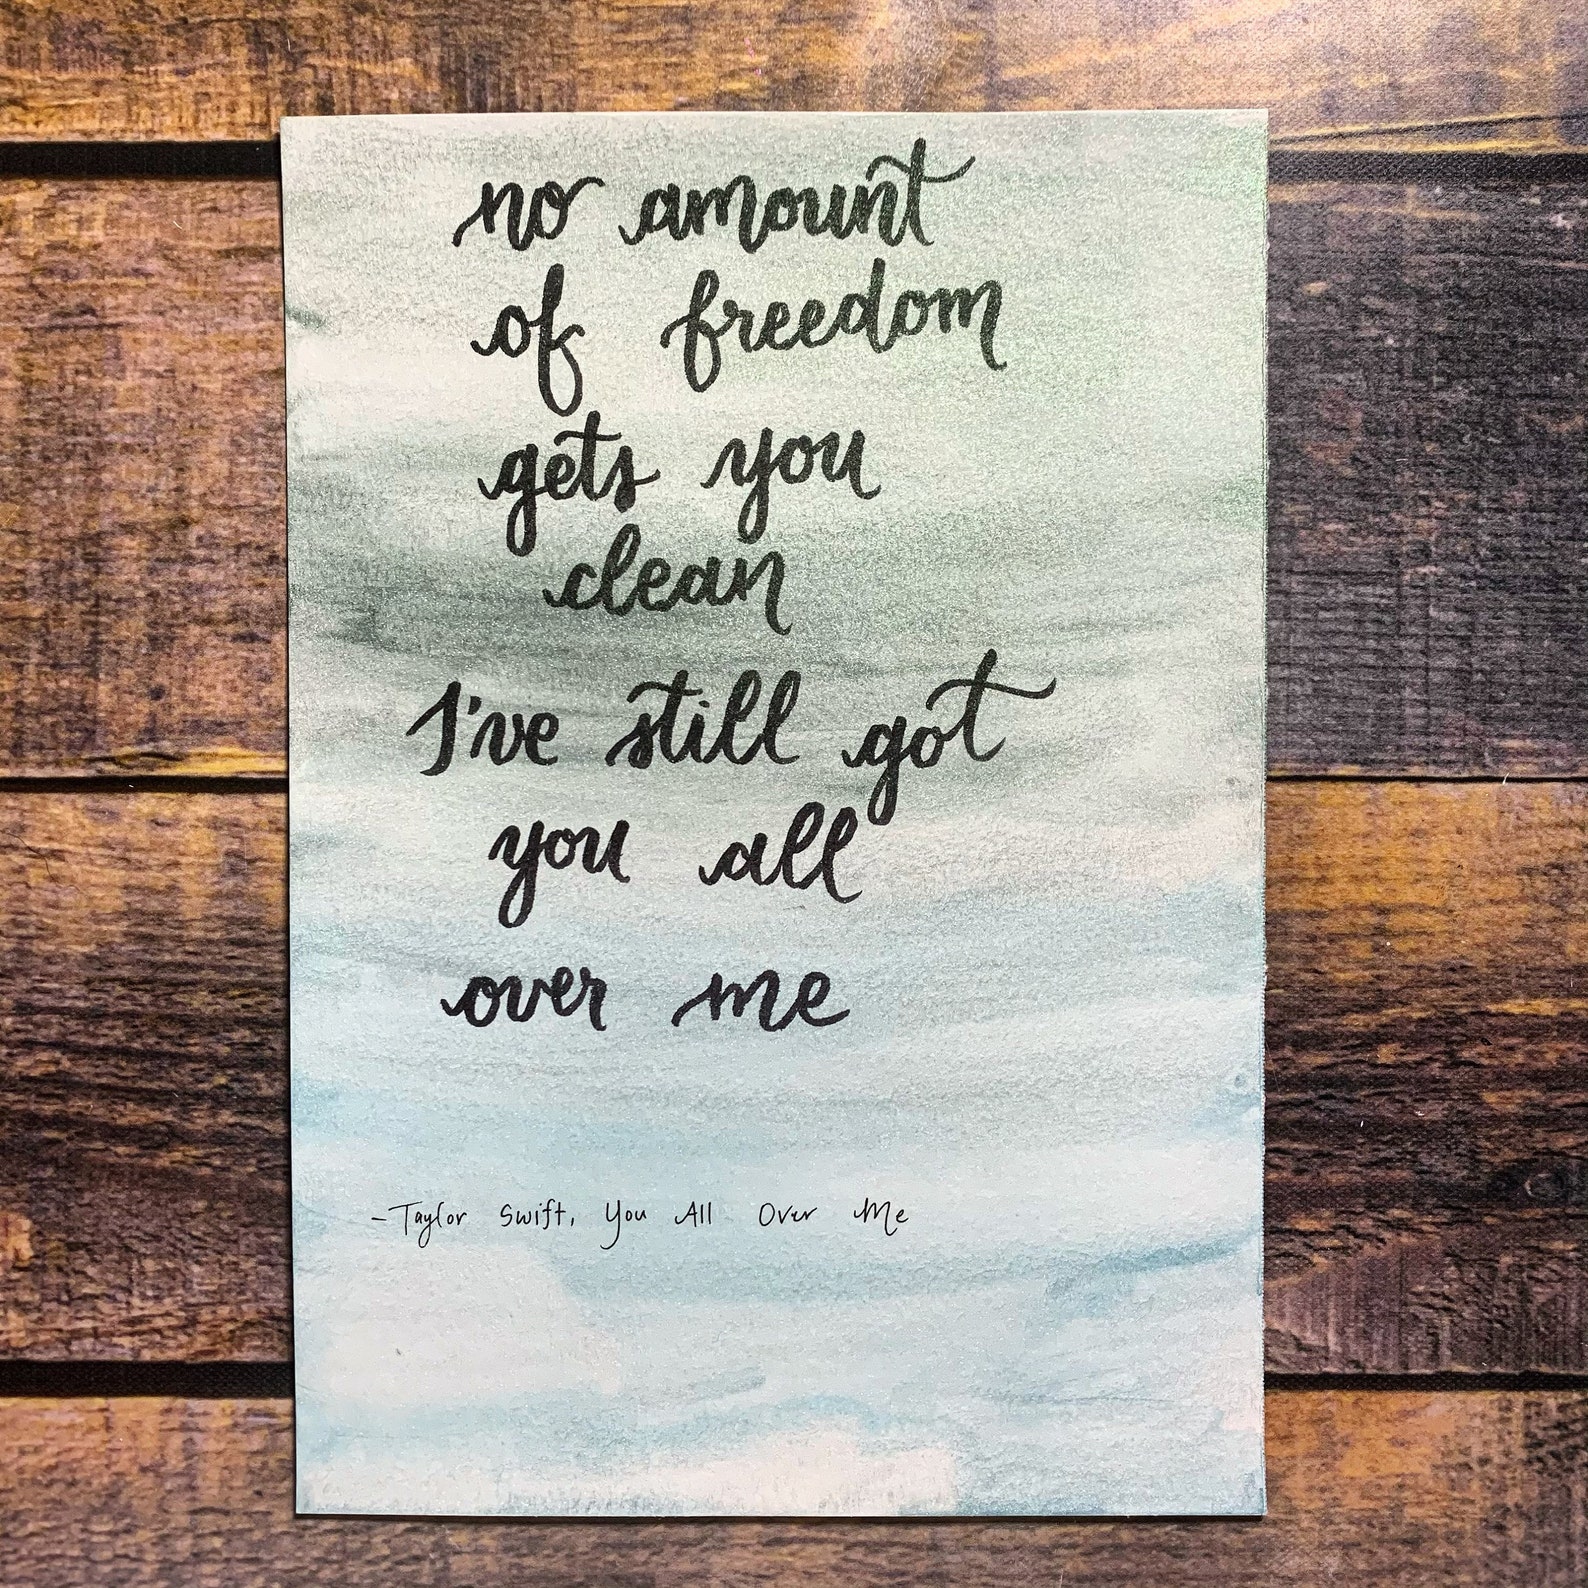 no amount
of freedom
gets you
clean
I've still got
you all
over me
-Taylor Swift, You All Over Me